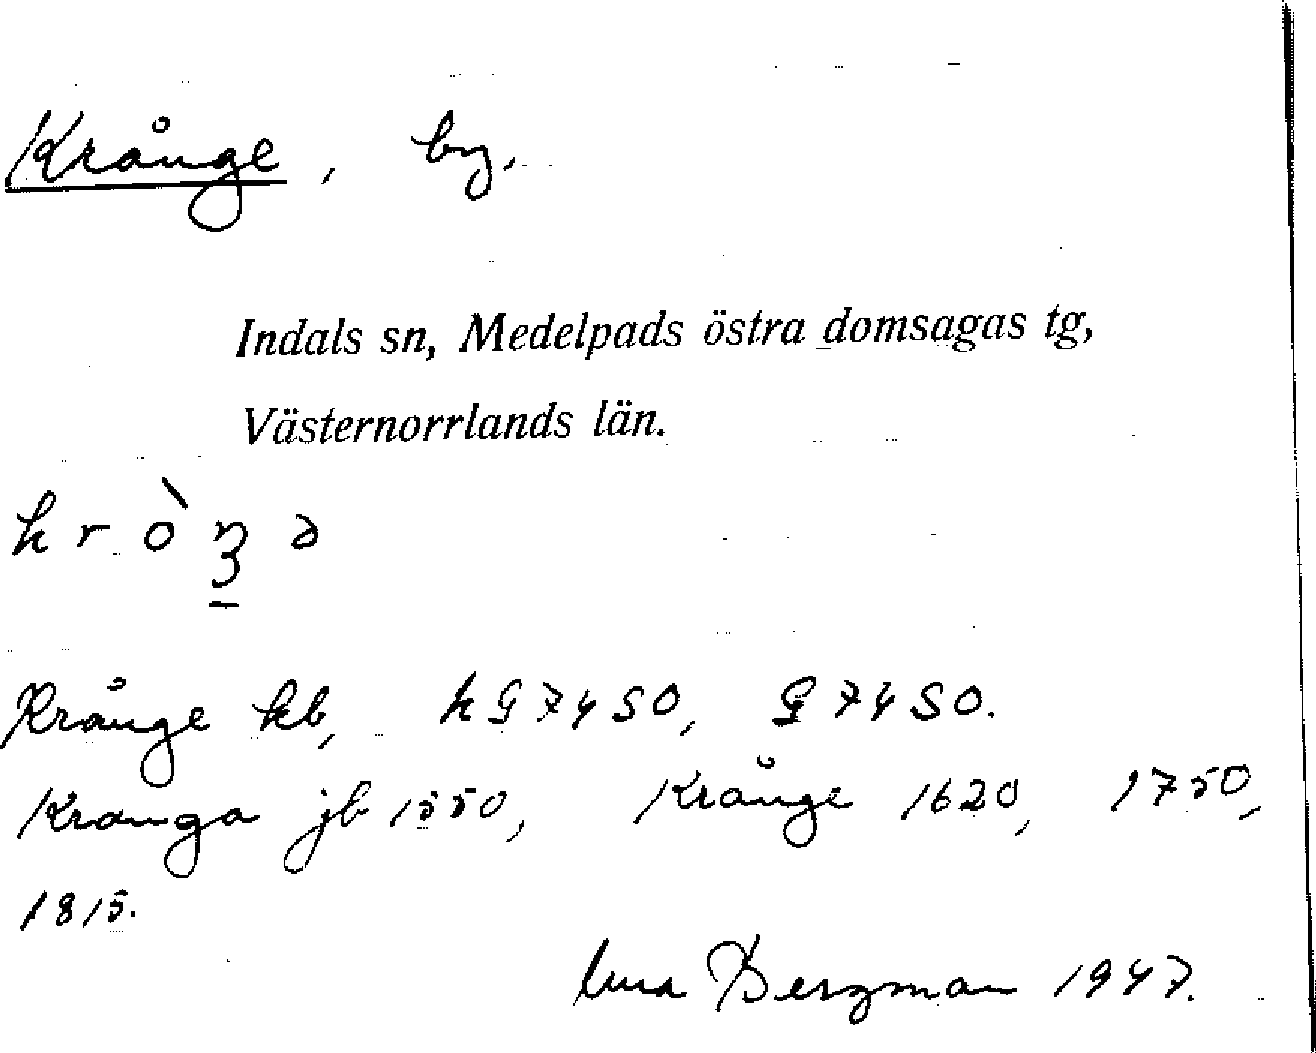 Krånge, by.
Indals sn, Medelpads östra domsagas tg,
Västernorrlands län.
Krånge kb, k G 7450, G 7450.
Kranga jb 1550, Krånge 1620, 1750,
1815.
Bergman 1947.